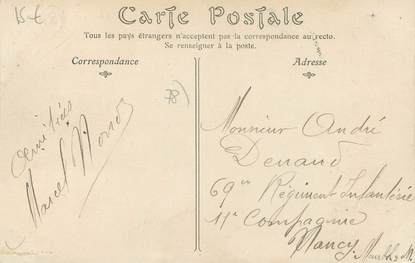 15 €
Carte Postale
Tous les pays étrangers n'acceptent pas la correspondance au recto.
Se renseigner à la poste.
Correspondance
Adresse
78)
Amitiés
Marcel
Monsieur André
Denaud
69me Régiment Infanterie
11e Compagnie
Nancy. Meurthe & M.